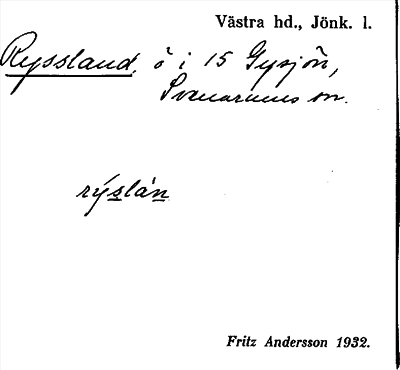 Västra hd., Jönk. l.
Ryssland, ö i 15 Gysjön,
Svenarums sn.
rýslán
Fritz Andersson 1932.